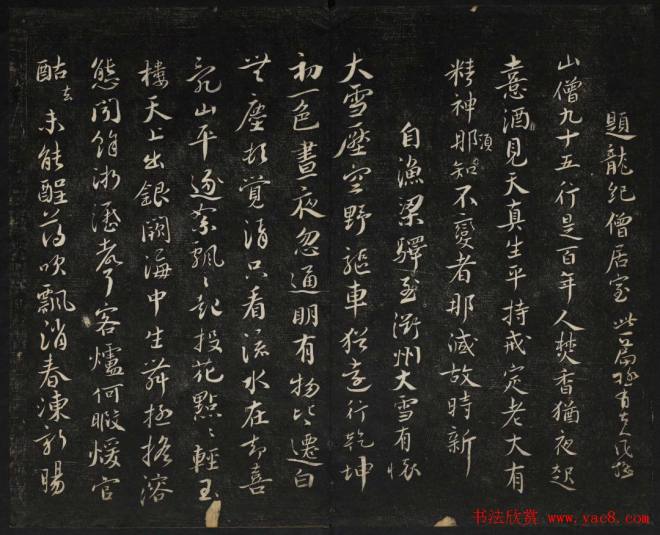 題龍紀僧居室 此一篇極有古人風格
山僧九十五行是百年人焚香猶夜起
憙酒見天真生平持戒定老大有
精神那須知不變者那減故時新
自漁梁驛至衢州大雪有懷
大雪壓空野驅車猶遠行乾坤
初一色晝夜忽通明有物皆遷白
無塵頓覺清只看流水在却喜
亂山平逐絮飄〻起投花點〻輕玉
樓天上出銀闕海中生舞極搖溶
態聞餘淅瀝聲客爐何暇煖官
酤去未能醒薄吹飄消春凍新暘
书法欣赏 www.yac8.com